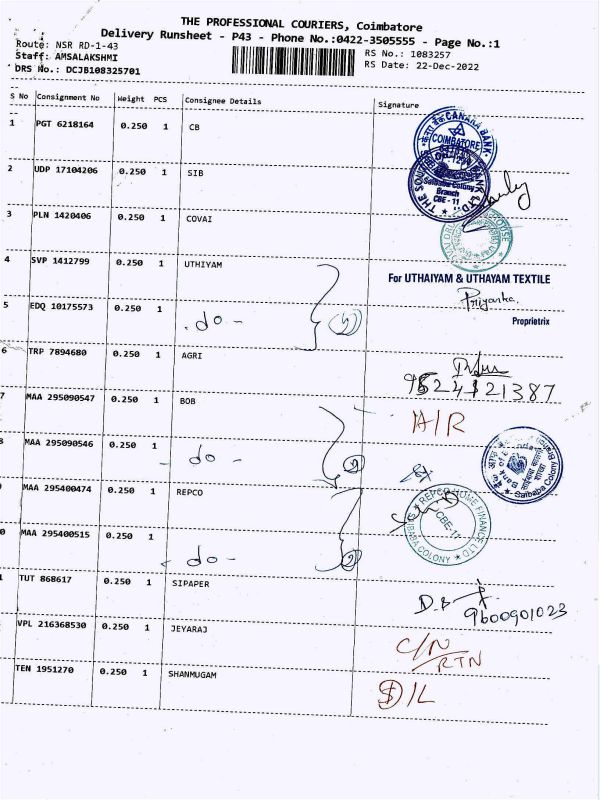 THE PROFESSIONAL COURIERS, Coimbatore
Delivery Runsheet - P43 - Phone No.:0422-3505555 - Page No.:1
Route: NSR RD-1-43
Staff: AMSALAKSHMI
DRS No.: DCJB108325701
RS No.: 1083257
RS Date: 22-Dec-2022
S No Consignment No Weight PCS Consignee Details Signature
1 PGT 6218164 0.250 1 CB
CANARA BANK
COIMBATORE
2 UDP 17104206 0.250 1 SIB
Saibaba Colony
Branch
CBE - 11
3 PLN 1420406 0.250 1 COVAI
4 SVP 1412799 0.250 1 UTHIYAM
For UTHAIYAM & UTHAYAM TEXTILE
Priyanka
Proprietrix
5 EDQ 10175573 0.250 1 - do -
6 TRP 7894680 0.250 1 AGRI
7 MAA 295090547 0.250 1 BOB
A/R
8 MAA 295090546 0.250 1 - do - 2
Saibaba Colony Branch
9 MAA 295400474 0.250 1 REPCO
REPCO HOME FINANCE LTD
CBE-11
SAIBABA COLONY
0 MAA 295400515 0.250 1 - do - 2
1 TUT 868617 0.250 1 SIPAPER
D.B
9600901023
VPL 216368530 0.250 1 JEYARAJ
C/N
RTN
TEN 1951270 0.250 1 SHANMUGAM
D/L